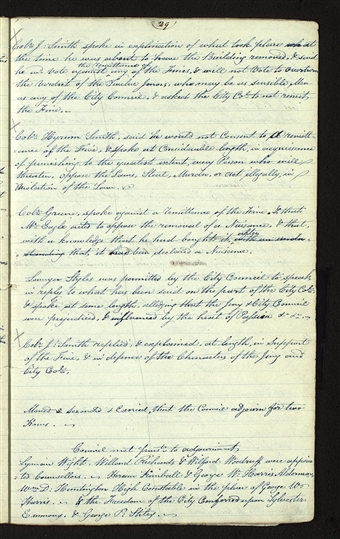 29
Col. J. Smith spoke in explanation of what took place at
the time he was about to have the Building removed, & said
he will Vote against any of the Fines, & will not Vote to overturn
the Verdict of the Twelve Jurors, who may be as sensible Men
as any of the City Council, & asked the City Col. to not remit
the Fine.
Col. Hyrum Smith, said he would not Consent to A remitt-
ance of the Fine, & spoke at Considerable length, in
of punishing to the greatest extent, every Person who will
threaten, oppose the Laws, Steal, Murder, or act illegally, in
Violation of the Law.
Col. Greene, spoke against a remittance of the Fine, & that
Mr. Eagle acts to oppose the removal of a Nuisance, & that
with a knowledge that he had bought it, when
that, it had been declared a Nuisance.
Lawyer Styles was permitted by the City Council to speak
in reply to what has been said on the part of the City Col.
& spoke at some length, alledging that the Jury & City Council
were prejudiced, & influenced by the heat of Passion &c.
Col. J. Smith replied, & explained, at length, in Support
of the Fine, & in defence of the Character of the Jury and
City Col.
Moved & seconded & Carried, that the Council adjourn for two
Hours.
Council met pursuant to adjournment,
Lyman Wight, Willard Richards & Wilford Woodruff were appoin-
ted Counsellors. Hiram Kimball & George W. Harris, Aldermen
Wm. D. Huntington High Constable in the place of George W.
Harris. & the Freedom of the City Conferred upon Sylvester
Emmons, & George P. Stiles.